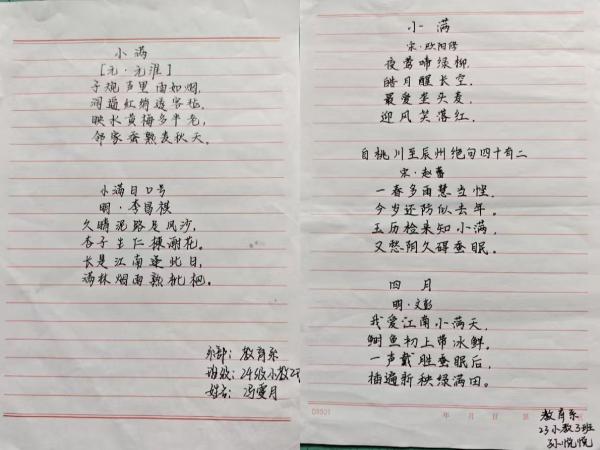 小满
[元·元淮]
子规声里雨如烟,
润逼红绡透客毡。
映水黄梅多半老,
邻家蚕熟麦秋天。
小满日口号
明·李昌祺
久晴泥路足风沙,
杏子生仁楝谢花。
长是江南逢此日,
满林烟雨熟枇杷。
系部:教育系
班级:24级小教2班
姓名:冯雯月
小满
宋·欧阳修
夜莺啼绿柳,
皓月醒长空。
最爱垄头麦,
迎风笑落红。
自桃川至辰州绝句四十有二
宋·赵蕃
一春多雨慧当悭,
今岁还防似去年。
玉历检来知小满,
又愁阴久碍蚕眠。
四月
明·文彭
我爱江南小满天,
鲥鱼初上带冰鲜。
一声戴胜蚕眠后,
插遍新秧绿满田。
年 月 日 第
教育系
23小教3班
孙悦悦